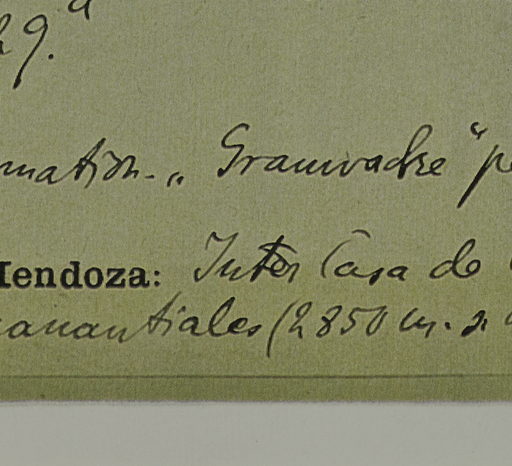 29.a
mation. „Grauwacke“ pe
Mendoza: Inter Casa de
anantiales (2850 m. s.